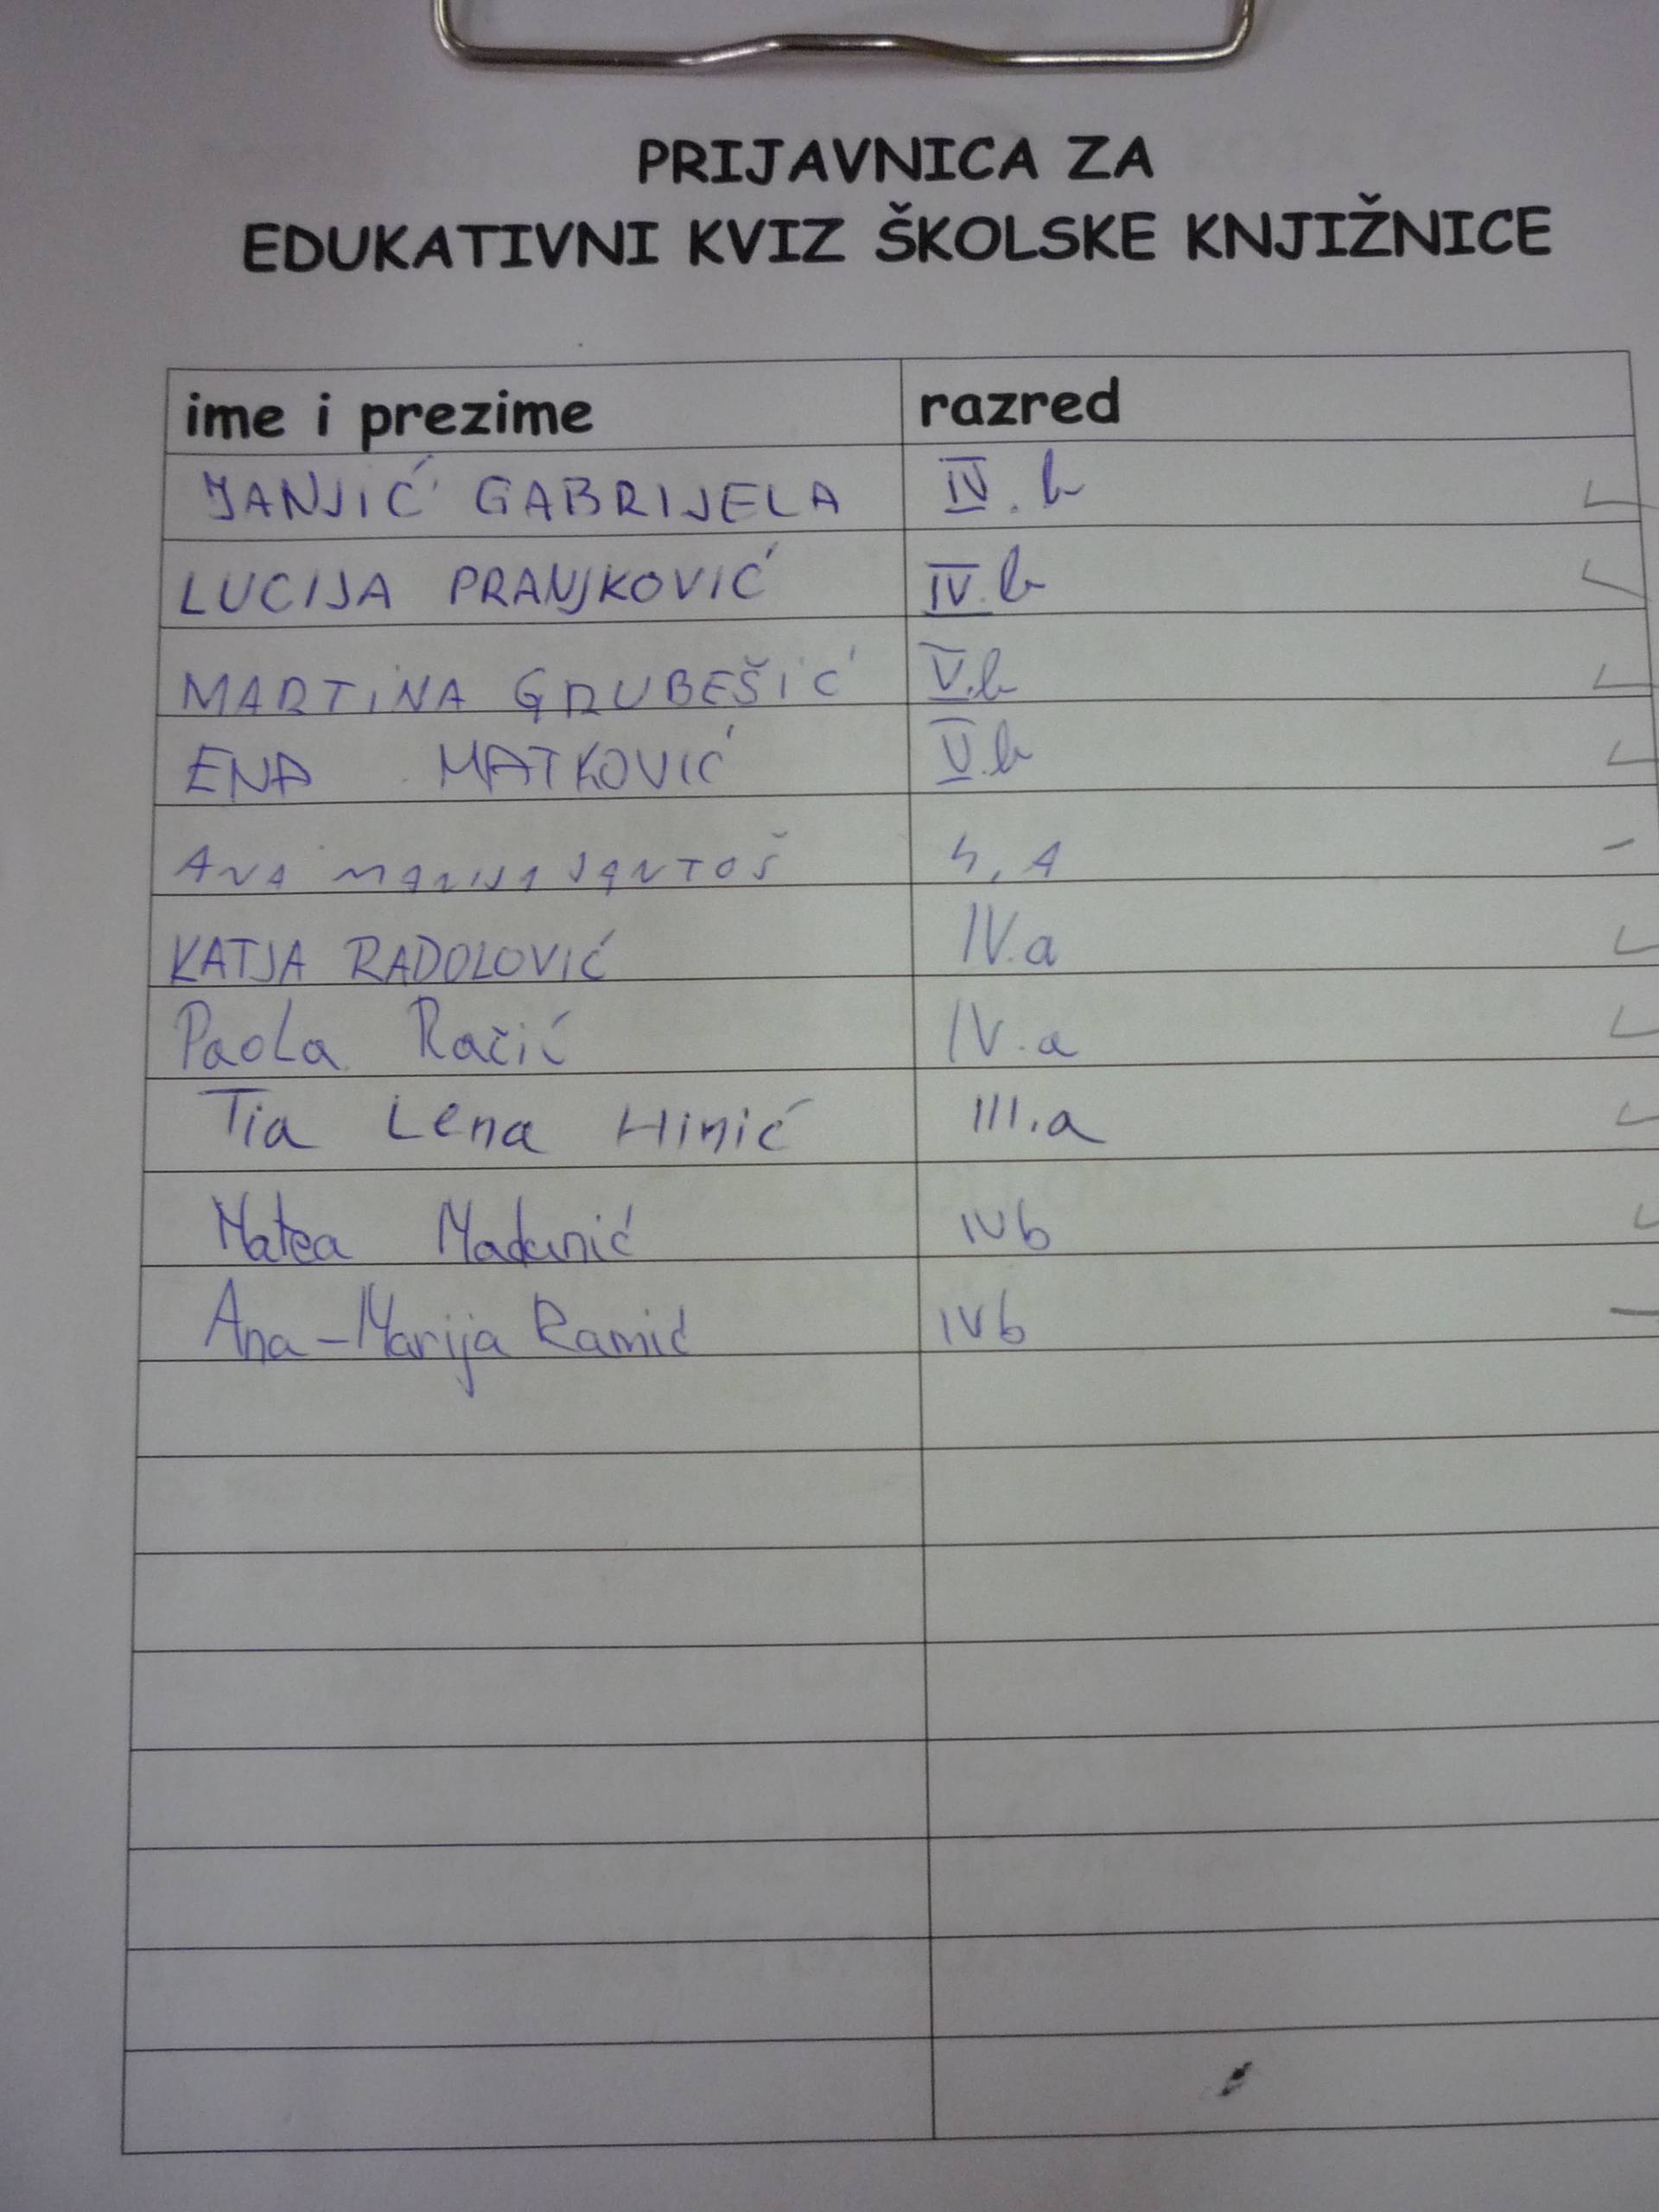 PRIJAVNICA ZA
EDUKATIVNI KVIZ ŠKOLSKE KNJIŽNICE
ime i prezime razred
JANJIĆ GABRIJELA IV. b
LUCIJA PRANJKOVIĆ IV. b
MARTINA GRUBEŠIĆ V. b
ENA MATKOVIĆ V. b
ANA MARIJA JANTOŠ 4. A
KATJA RADOLOVIĆ IV. a
Paola Račić IV. a
Tia Lena Hinić III. a
Matea IV b
Ana-Marija Ramić IV b